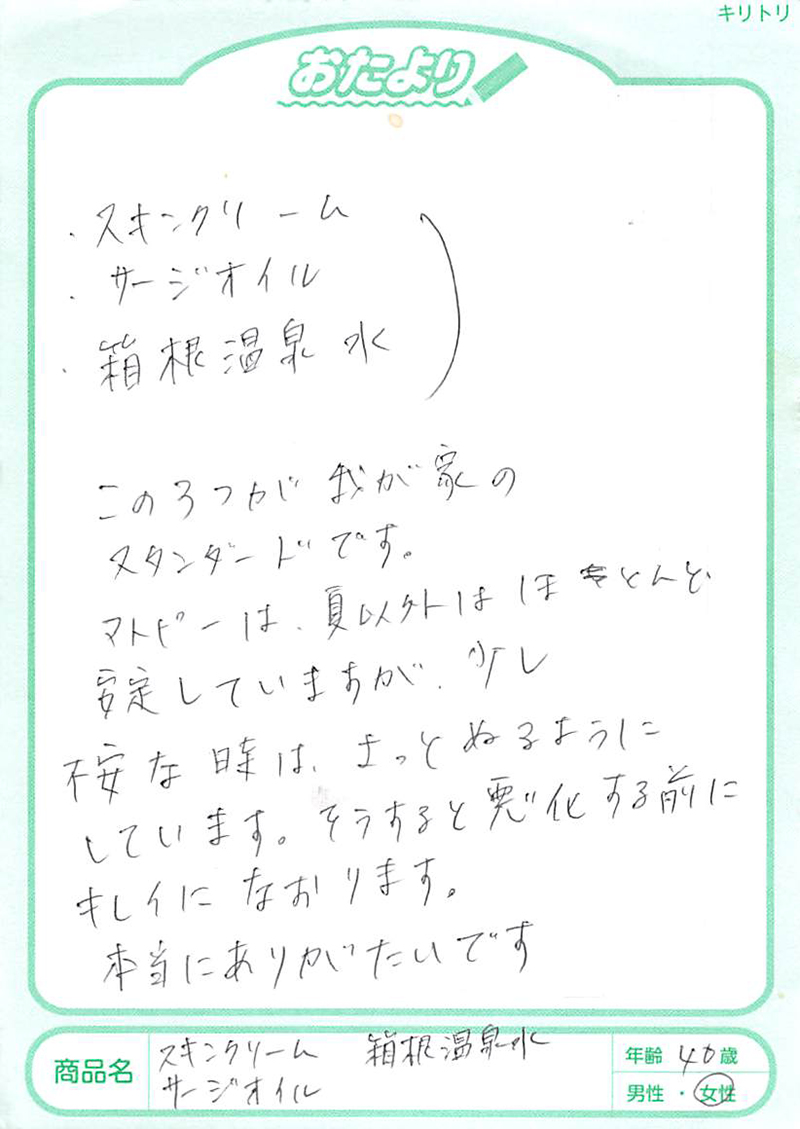 キリトリ
おたより
・スキンクリーム
・サージオイル
・箱根温泉水
この3つが我が家の
スタンダードです。
アトピーは、夏以外はほとんど
安定していますが、少し
不安な時は、さっとぬるように
しています。そうすると悪化する前に
キレイになおります。
本当にありがたいです
商品名
スキンクリーム 箱根温泉水
サージオイル
年齢 40歳
男性・女性